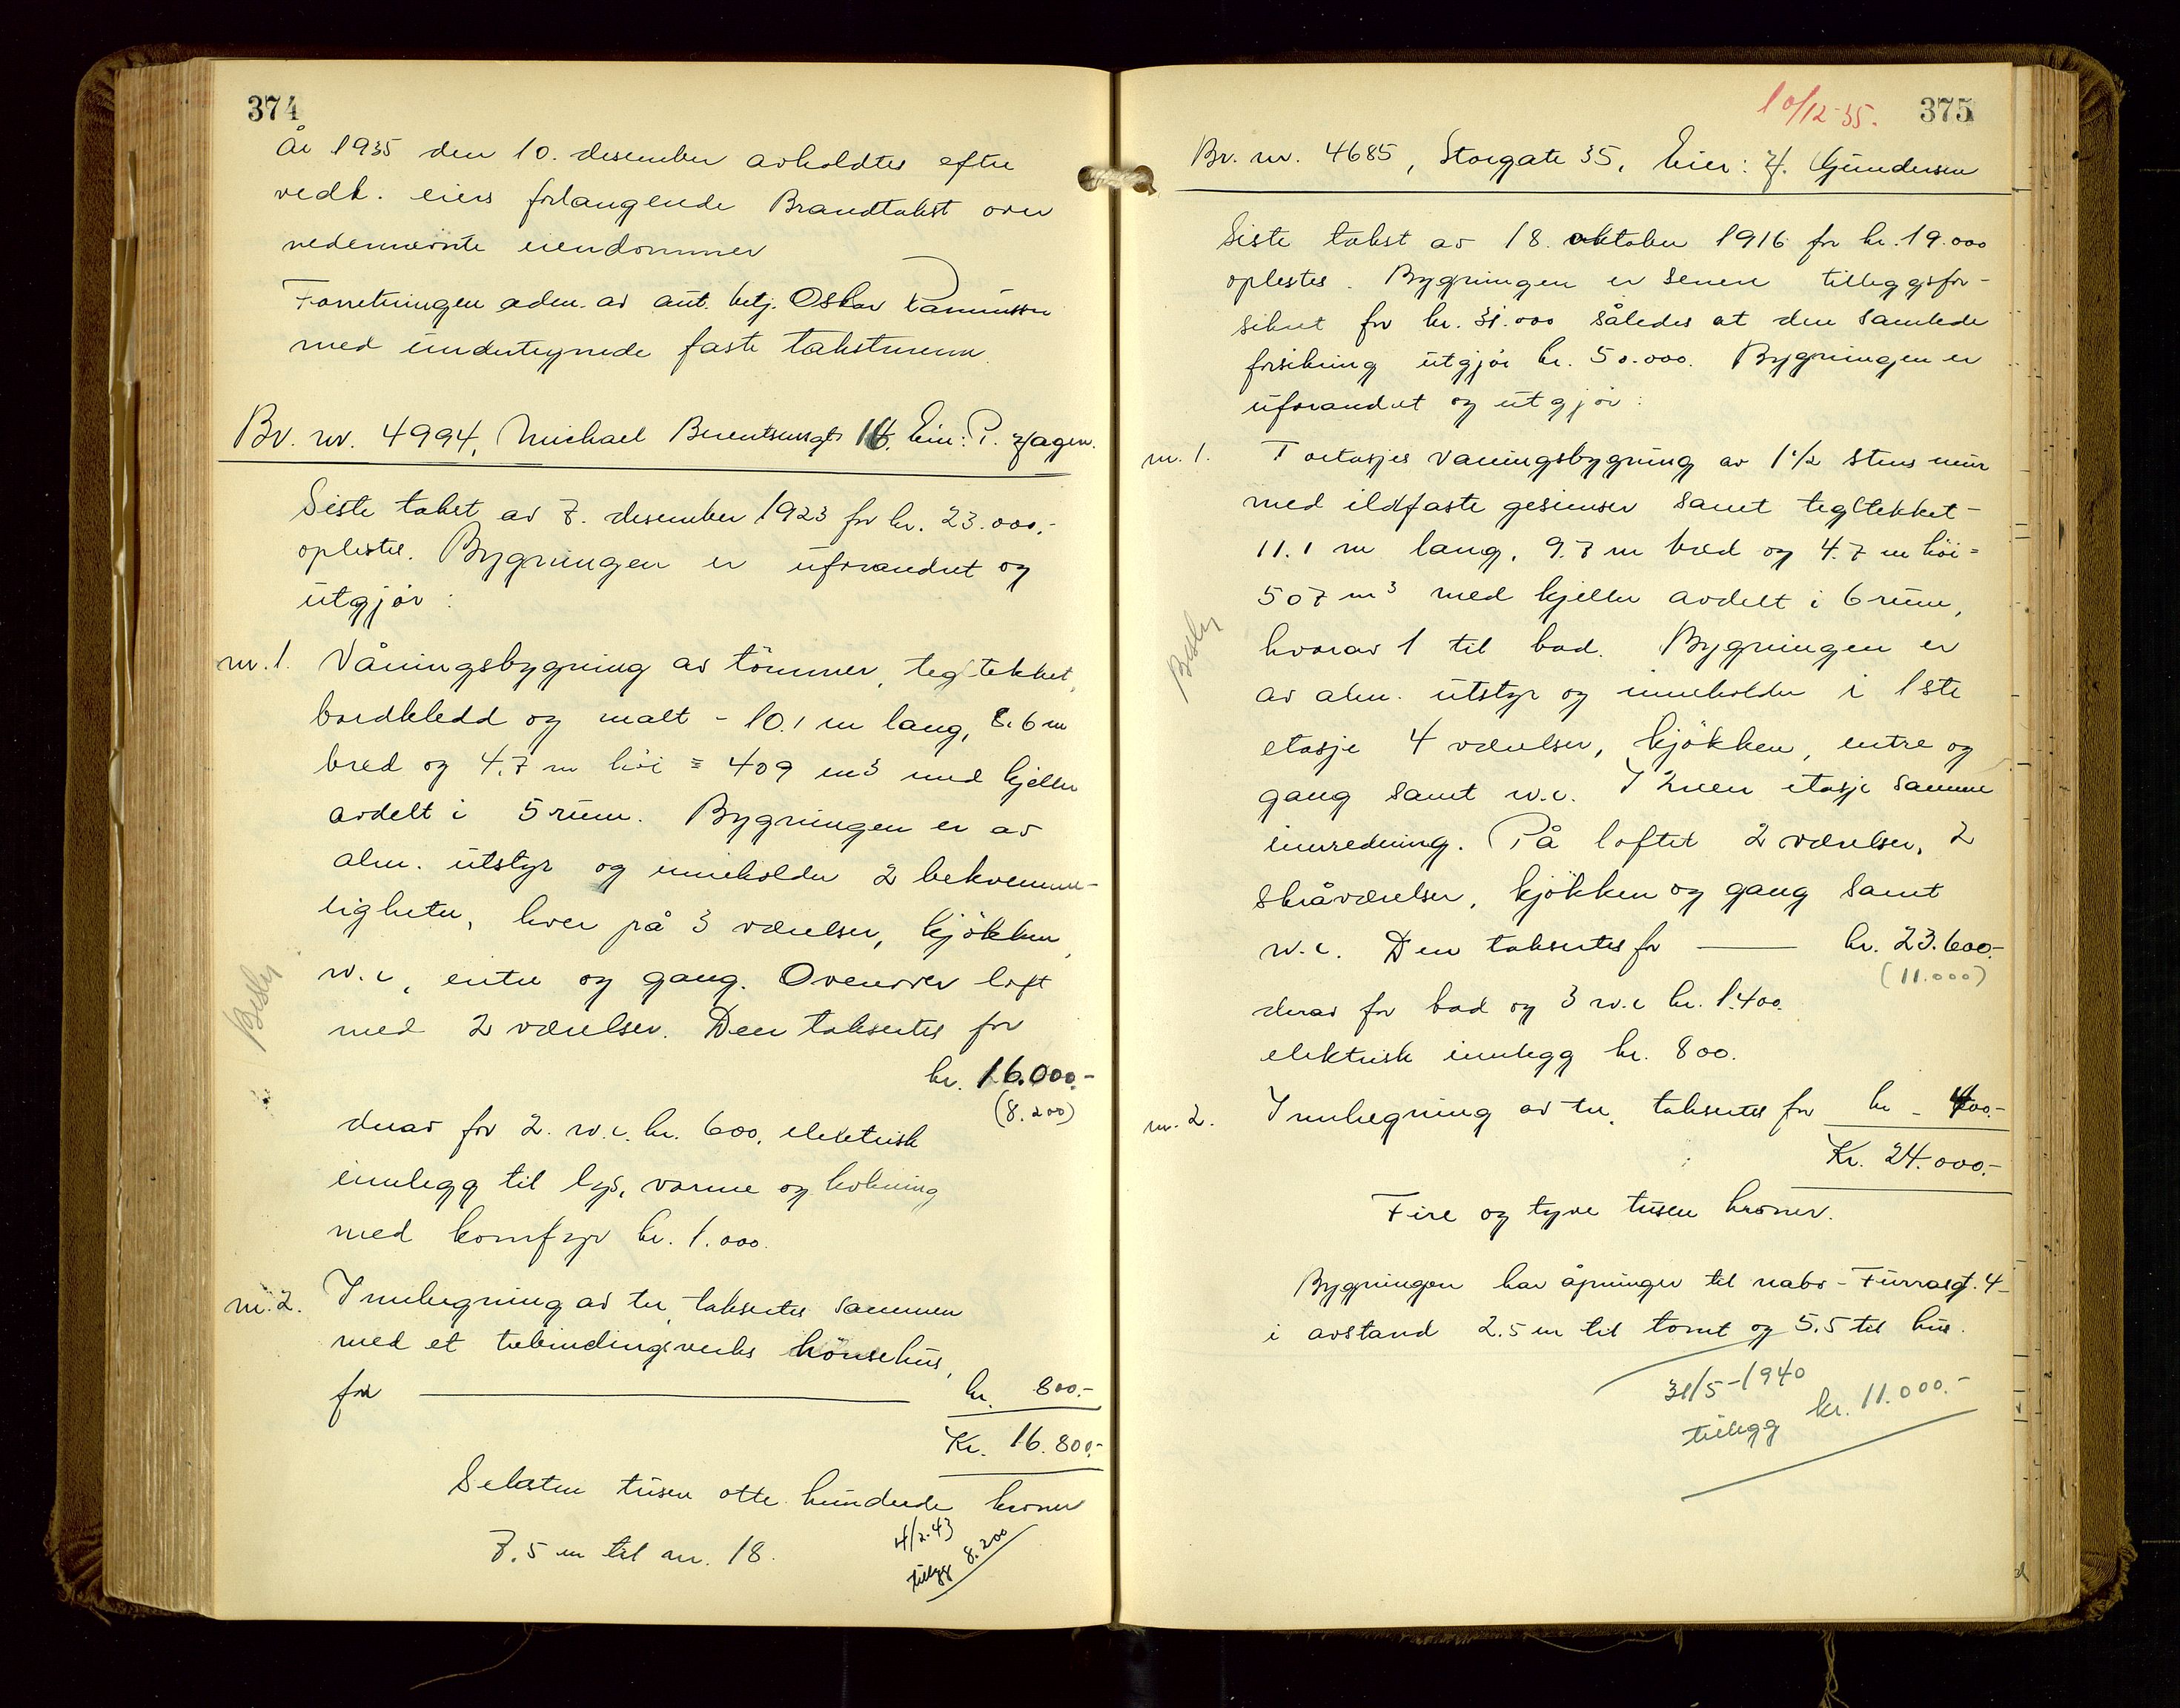 374
År 1935 den 10. desember avholdtes efter
vedk. eiers forlangende Brandtakst over
nedennevnte eiendommer
Forretningen adm. av aut. betj. Oskar Rasmussen
med undertegnede faste takstmenn.
Br. nr. 4994, Michael Berentsensgt 16. Eier: P. Hagen.
Siste takst av 7. desember 1923 for kr. 23.000.-
oplestes. Bygningen er uforandret og
utgjør:
nr. 1. Våningsbygning av tømmer, teg(tekket,
bordkledd og malt - 10.1 m lang, 8.6 m
bred og 4.7 m høi = 409 m3 med kjeller
avdelt i 5 rum. Bygningen er av
alm. utstyr og inneholder 2 bekvemme-
ligheter, hver på 3 værelser, kjøkken,
w.c, entre og gang. Ovenover loft
med 2 værelser. Den taksertes for
kr. 16.000.-
(8.200)
derav for 2. w.c. kr. 600. elektrisk
innlegg til lys, varme og kokning
med komfyr kr. 1.000.
nr. 2. Innhegning av tre, taksertes sammen
med et trebindingsverks hønsehus,
for kr. 800.-
Kr. 16.800.-
Seksten tusen otte hundrede kroner
7.5 m til nr. 18.
4/2-43
tillegg 8.200
Besby
10/12-35.
375
Br. nr. 4685, Storgate 35, Eier: H. Gundersen
Siste takst av 18. oktober 1916 for kr. 19.000
oplestes. Bygningen er senere tilleggsfor-
sikret for kr. 31.000 således at den samlede
forsikring utgjør kr. 50.000. Bygningen er
uforandret og utgjør:
nr. 1. Toetasjes våningsbygning av 1 1/2 stens mur
med ildfaste gesimser samt teg(tekket -
11.1 m lang, 9.7 m bred og 4.7 m høi =
507 m3 med kjeller avdelt i 6 rum,
hvorav 1 til bad. Bygningen er
av alm. utstyr og inneholder i 1ste
etasje 4 værelser, kjøkken, entre og
gang samt w.c. I 2nen etasje samme
innredning. På loftet 2 værelser, 2
skråværelser, kjøkken og gang samt
w.c. Den taksertes for kr. 23.600.-
(11.000)
derav for bad og 3 w.c kr. 1.400.
elektrisk innlegg kr. 800.
nr. 2. Innhegning av tre, taksertes for kr - 400.-
Kr. 24.000.-
Fire og tyve tusen kroner.
Bygningen har åpninger til nabo - Furrasgt. 4 -
i avstand 2.5 m til tomt og 5.5 til hus.
31/5-1940
tillegg kr. 11.000.-
Besby